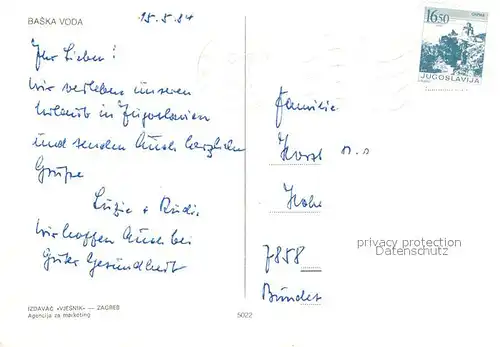 BAŠKA VODA
15.5.84
Ihr Lieben!
Wir verleben unseren
Urlaub in Jugoslawien
und senden Euch herzliche
Grüße
Luzie + Rudi.
Wir hoffen Euch bei
guter Gesundheit
IZDAVAČ «VJESNIK» — ZAGREB
Agencija za marketing
5022
16.50
JUGOSLAVIJA
Familie
Horst
7858
privacy protection
Datenschutz